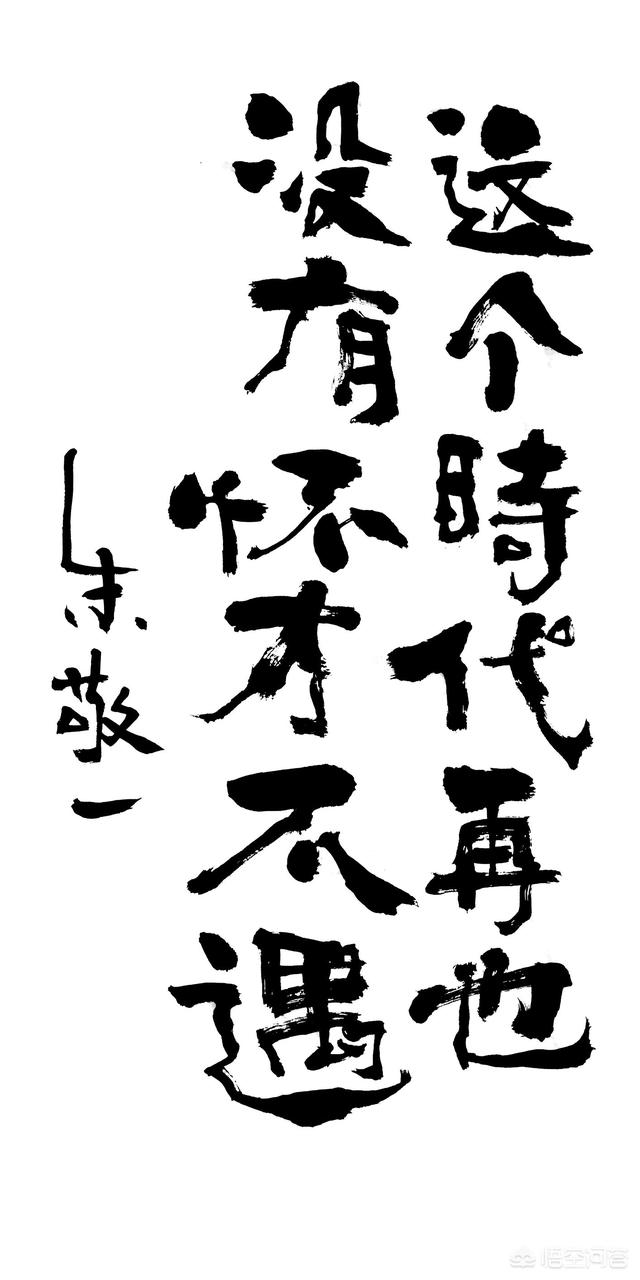 这个時代再也
没有怀才不遇
朱敬一
悟空问答